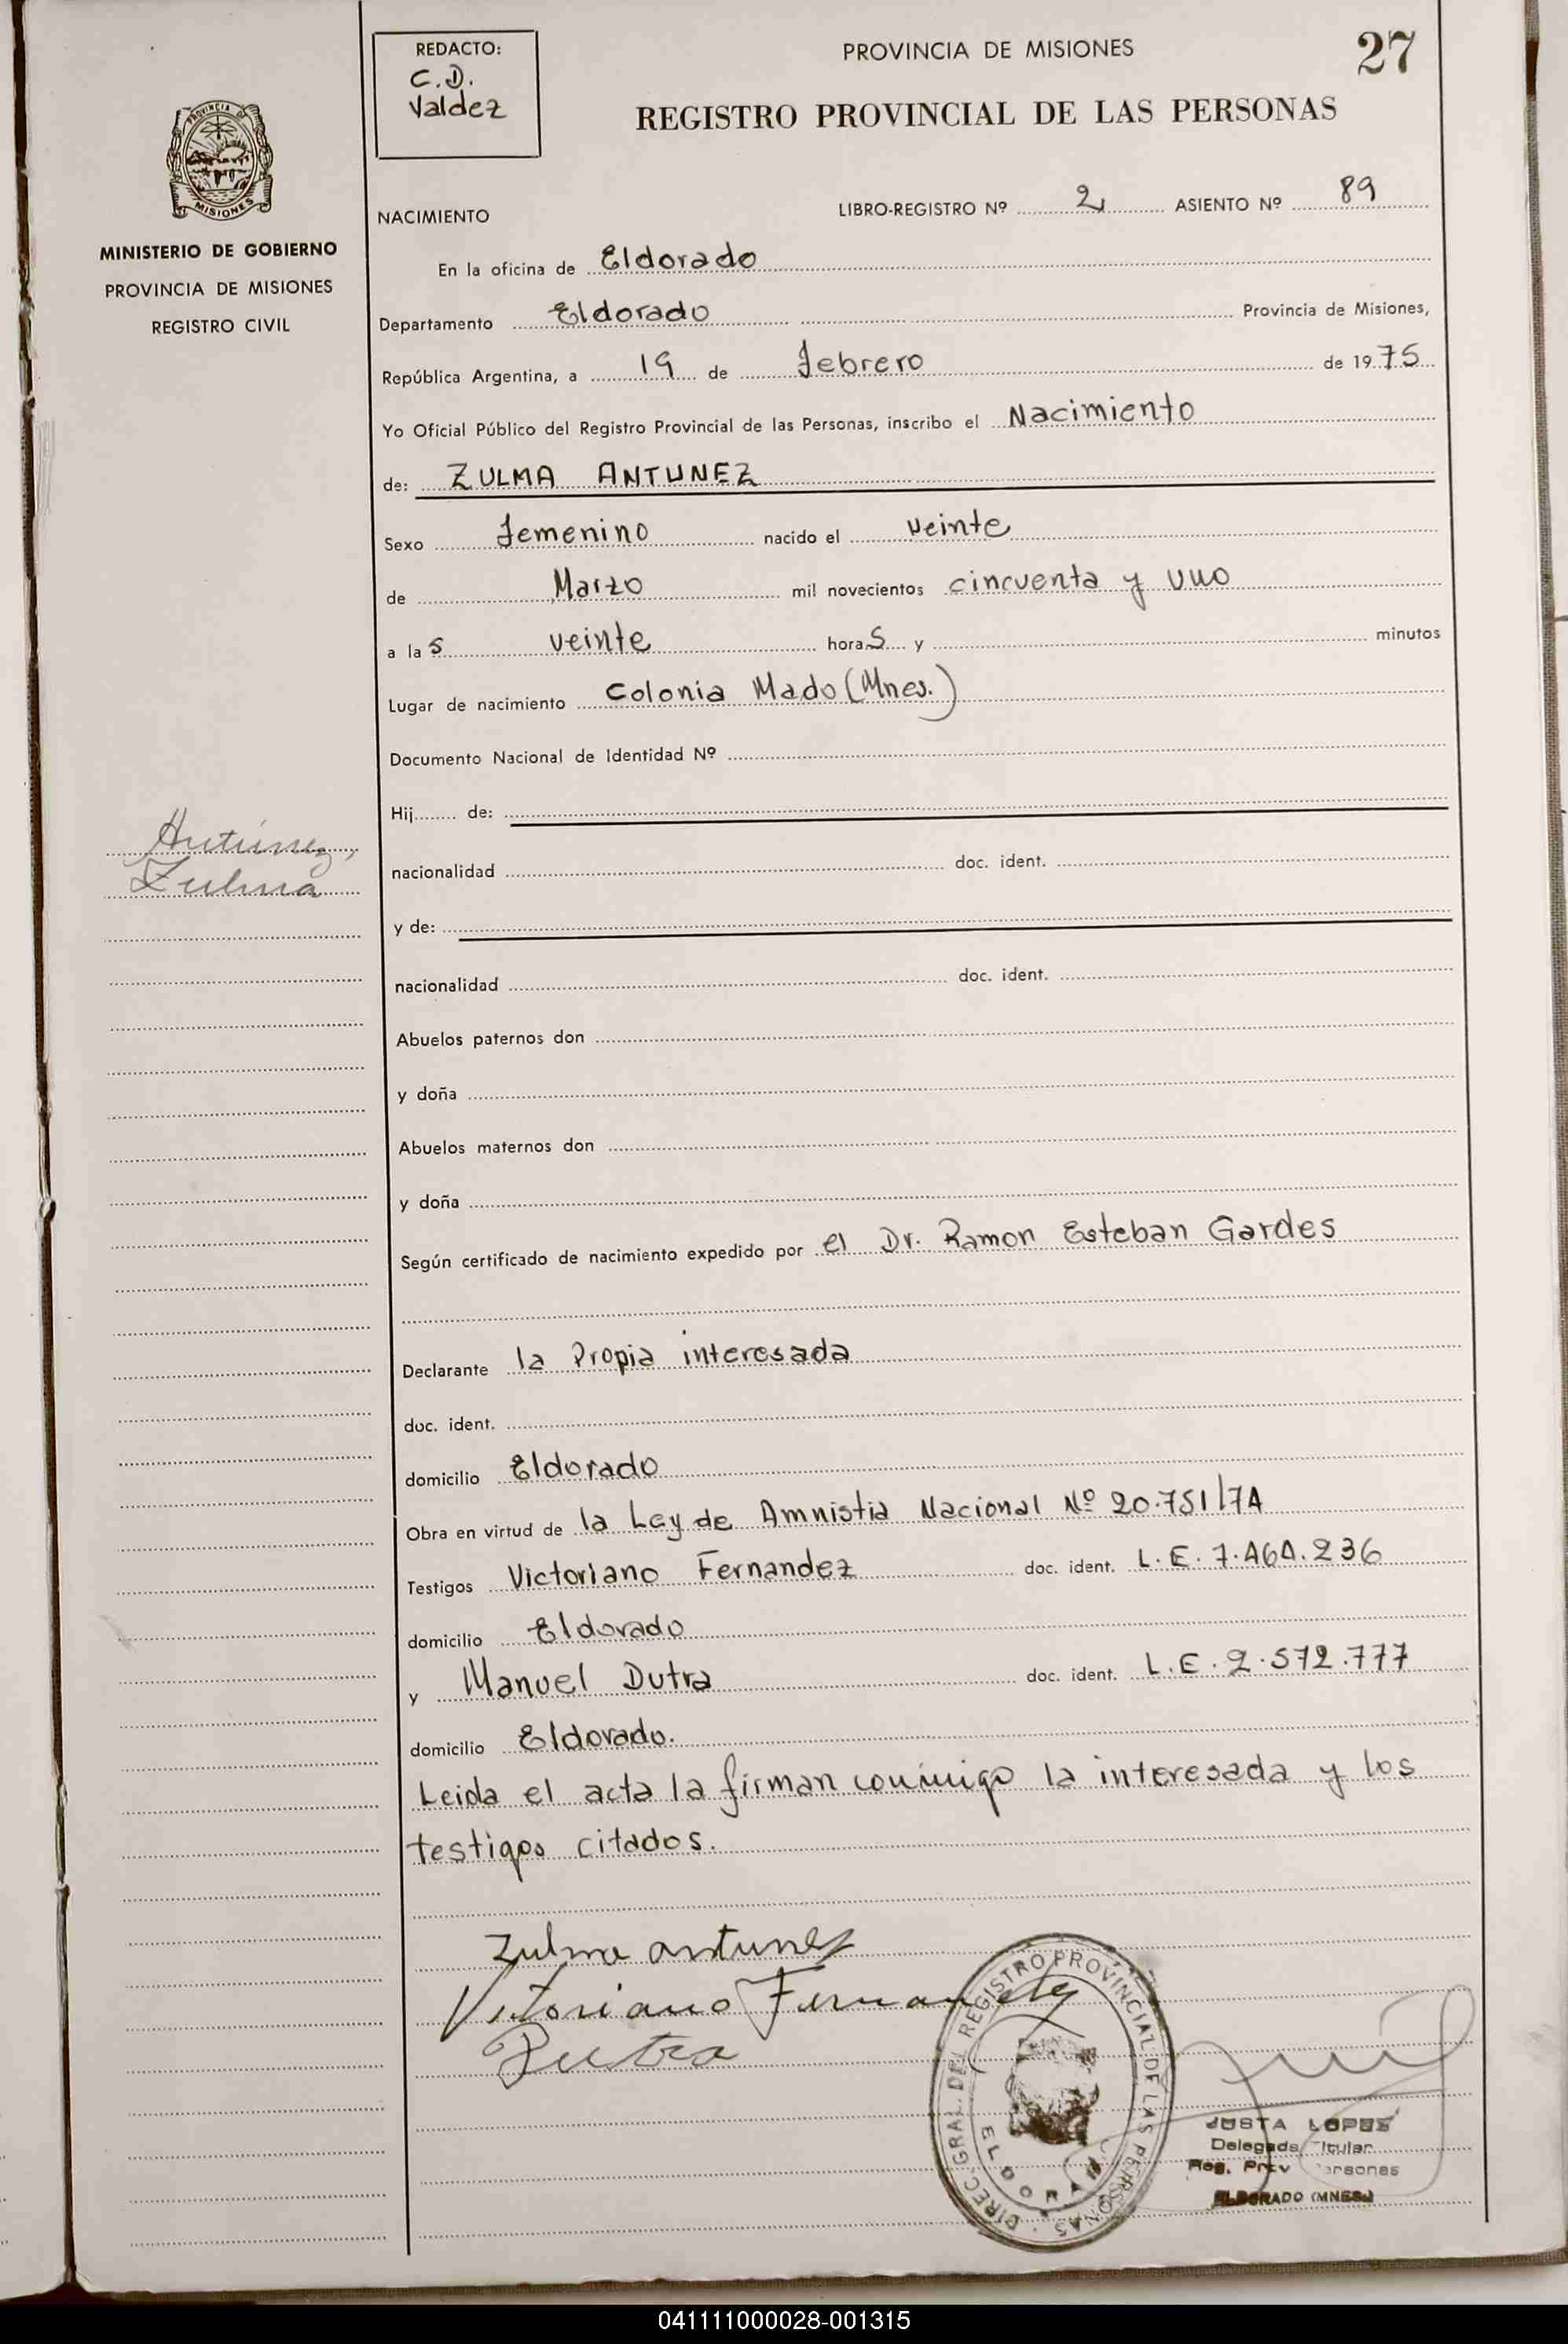 REDACTO:
C.D.
Valdez
PROVINCIA DE MISIONES
27
REGISTRO PROVINCIAL DE LAS PERSONAS
PROVINCIA DE
MISIONES
MINISTERIO DE GOBIERNO
PROVINCIA DE MISIONES
REGISTRO CIVIL
NACIMIENTO
LIBRO-REGISTRO Nº 2 ASIENTO Nº 89
En la oficina de Eldorado
Departamento Eldorado Provincia de Misiones,
República Argentina, a 19 de febrero de 1975
Yo Oficial Público del Registro Provincial de las Personas, inscribo el Nacimiento
de: ZULMA ANTUNEZ
Sexo femenino nacido el veinte
de Marzo mil novecientos cincuenta y uno
a las veinte horas y minutos
Lugar de nacimiento Colonia Mado (Mnes.)
Documento Nacional de Identidad Nº
Hij de:
nacionalidad doc. ident.
y de:
nacionalidad doc. ident.
Abuelos paternos don
y doña
Abuelos maternos don
y doña
Antúnez,
Zulma
Según certificado de nacimiento expedido por el Dr. Ramon Esteban Gardes
Declarante la Propia interesada
doc. ident.
domicilio Eldorado
Obra en virtud de la Ley de Amnistia Nacional Nº 20.751/74
Testigos Victoriano Fernandez doc. ident. L.E. 7.464.236
domicilio Eldorado
y Manuel Dutra doc. ident. L.E. 2.572.777
domicilio Eldorado.
Leida el acta la firman conmigo la interesada y los
testigos citados.
Zulma antunez
Vitoriano Fernandez
Dutra
DIREC. GRAL. DEL REGISTRO PROVINCIAL DE LAS PERSONAS
ELDORADO
JUSTA LOPES
Delegada Titular
Reg. Prov Personas
ELDORADO (MNES.)
041111000028-001315